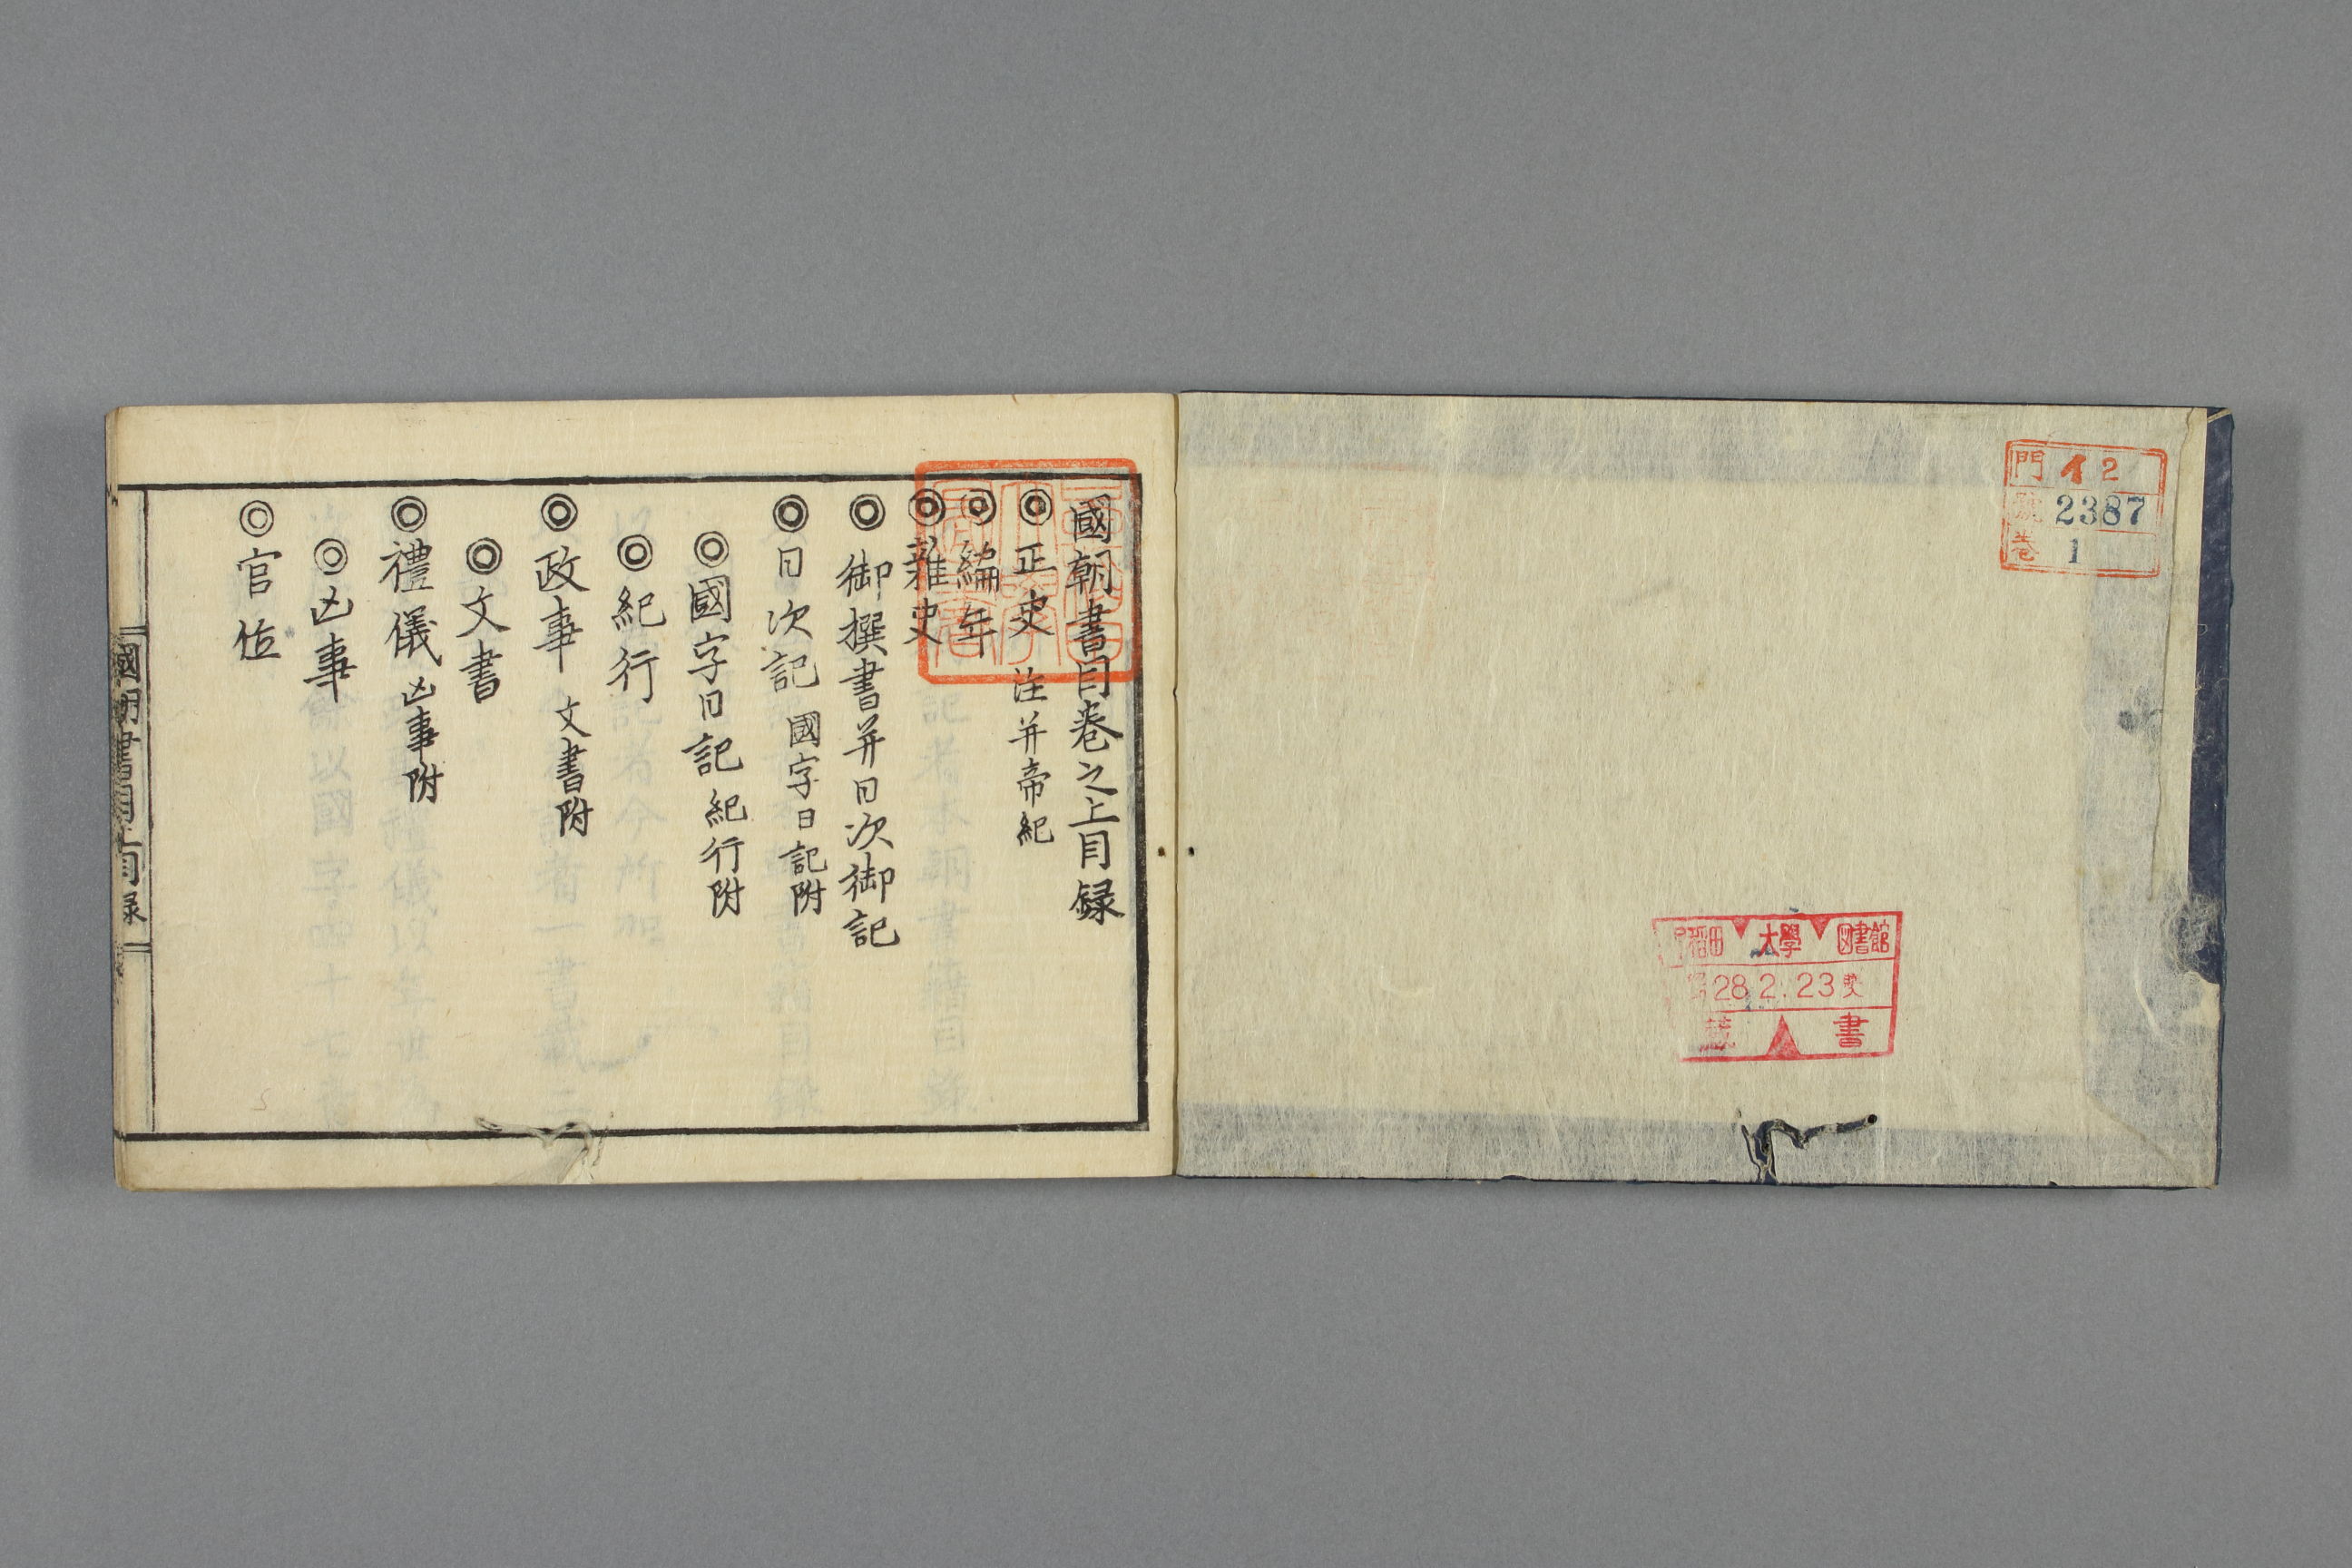 門 イ 2
號 2387
卷 1
早稲田 大學 図書館
28.2.23
藏 書
國朝書目卷之上目録
◎正史 注并帝紀
◎編年
◎雜史
◎御撰書并日次御記
◎日次記 國字日記附
◎國字日記 紀行附
◎紀行
◎政事 文書附
◎文書
◎禮儀 凶事附
◎凶事
◎官位
國朝書目上目録